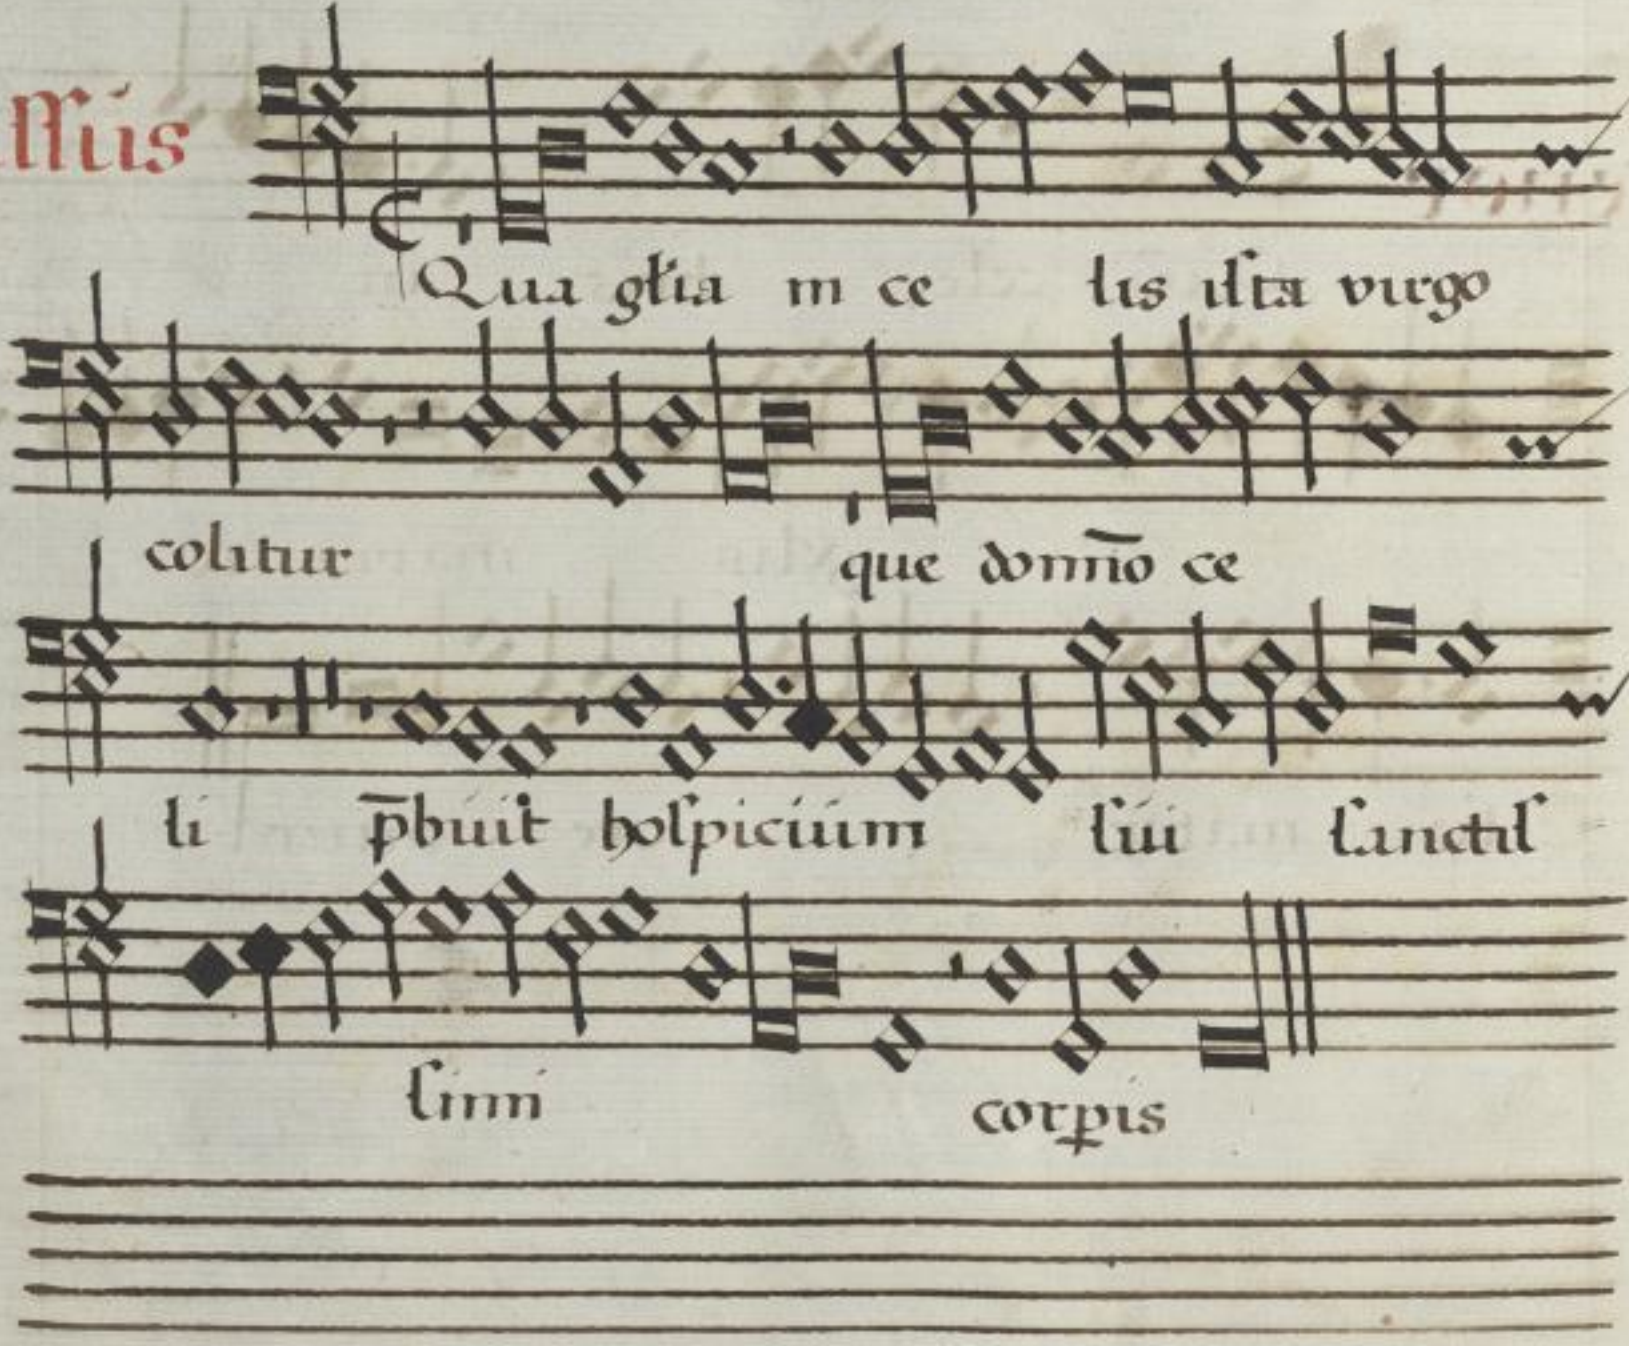 ssus
Qua gl̄ia in ce lis ista virgo
colitur que domn̄o ce
li p̄buit hospicium sui sanctis
simi corꝑis